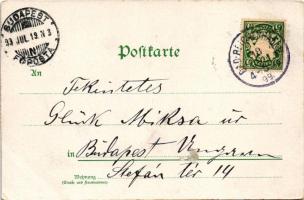 BUDAPEST
99 JUL. 19. N 3
Postkarte
An
Tekintetes
Glück Miksa úr
in Budapest Ungarn
Stefán tér 14
Wohnung
(Straße und Hausnummer)